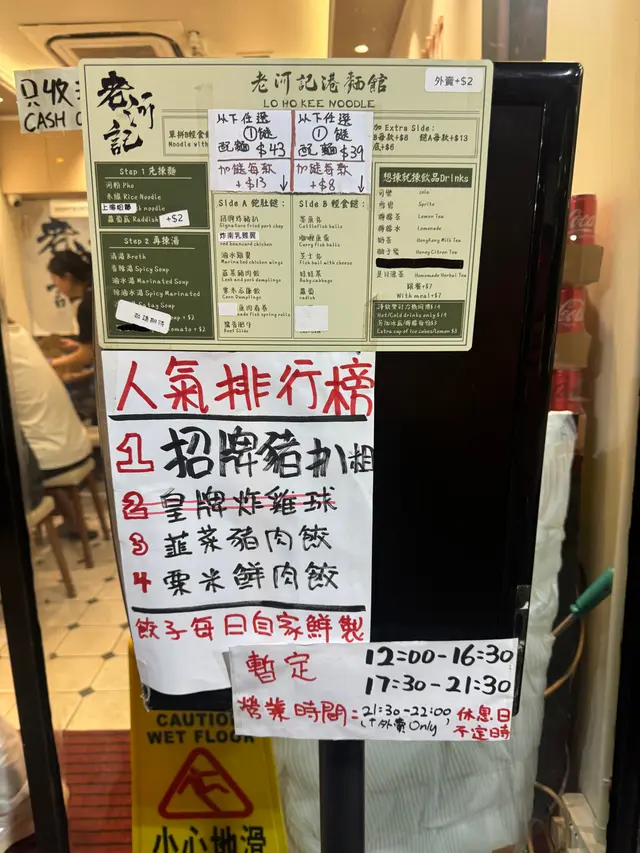 只收
CASH O
老河記
老河記港麵館
LO HO KEE NOODLE
外賣+$2
以下任選
①餸
配麵$43
加餸每款
+$13
以下任選
①餸
配麵$39
加餸每款
+$8
Extra Side :
餸A每款+$13
Step 1 先揀麵
河粉 Pho
米線 Rice Noodle
上海粗麵 noodle
+$2
Step 2 再揀湯
清湯 Broth
香辣湯 Spicy Soup
滷水湯 Marinated Soup
辣滷水湯 Spicy Marinated
+ $2
敬請刪除
Side A 餸肚餸:
招牌炸豬扒
Signature fried pork chop
炸南乳雞翼
red beancurd chicken
滷水雞翼
Marinated chicken wings
韮菜豬肉餃
Leek and pork dumplings
粟米瓜蓉餃
Corn Dumplings
made fish spring rolls
Beef Slide
Side B 輕食餸:
墨魚丸
Cuttlefish balls
咖喱魚蛋
Curry fish balls
芝士丸
Fish ball with cheese
娃娃菜
Baby cabbage
蘿蔔
radish
想揀杋揀飲品Drinks
可樂 cola
雪碧 Sprite
檸檬茶 Lemon Tea
檸檬水 Lemonade
奶茶 HongKong Milk Tea
柚子蜜 Honey Citron Tea
Homemade Herbal Tea
跟餐+$7
With meal+$7
Hot/Cold drinks only $14
Extra cup of ice cubes/lemon $3
人氣排行榜
1 招牌豬扒粗
2 皇牌炸雞球
3 韮菜豬肉餃
4 粟米鮮肉餃
餃子每日自家鮮製
暫定
營業時間:
12:00-16:30
17:30-21:30
21:30-22:00
(外賣Only)
休息日
不定時
CAUTION
WET FLOOR
小心地滑